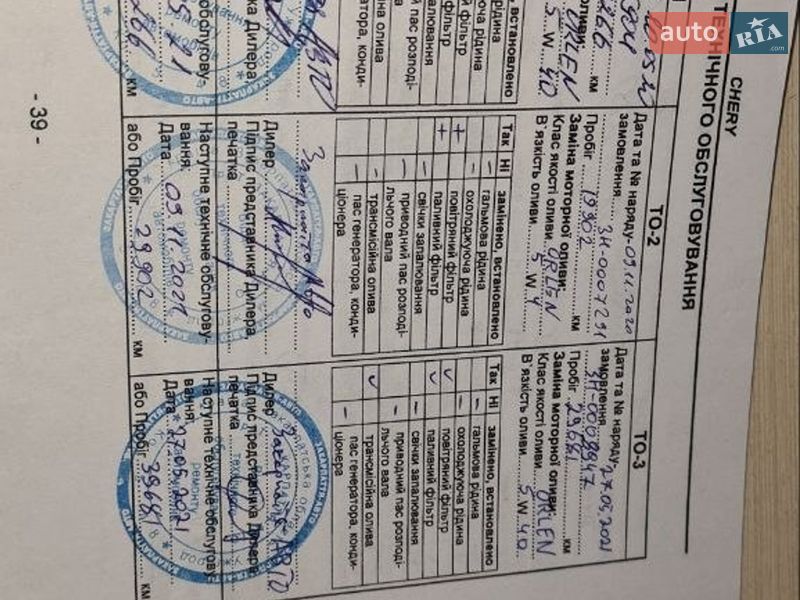 CHERY
ТЕХНІЧНОГО ОБСЛУГОВУВАННЯ
auto RIA .com
оливи:
ORLEN
5 W 40
км
рідина
юча рідина
й фільтр
фільтр
замінено, встановлено
ТО-2
Дата та № наряду-09.11.2020
замовлення ЗН-0007291
Пробіг 19902 км
Заміна моторної оливи:
Клас якості оливи ORLEN
В'язкість оливи 5 W 4
Так Ні замінено, встановлено
– гальмова рідина
– охолоджуюча рідина
+ повітряний фільтр
+ паливний фільтр
– свічки запалювання
– приводний пас розподільчого вала
– трансмісійна олива
– пас генератора, кондиціонера
Дилер Закарпаття Авто
Підпис представника Дилера,
печатка
Наступне технічне обслугову-
вання:
Дата 09.11.2021
або Пробіг 29902 км
ТО-3
Дата та № наряду- 27.05.2021
замовлення
Пробіг 29681 км
Заміна моторної оливи:
Клас якості оливи ORLEN
В'язкість оливи 5 W 40
Так Ні замінено, встановлено
– гальмова рідина
– охолоджуюча рідина
v повітряний фільтр
v паливний фільтр
– свічки запалювання
– приводний пас розподі-
льчого вала
v трансмісійна олива
– пас генератора, конди-
ціонера
Дилер Закарпаття АВТО
Підпис представника Дилера,
печатка
Наступне технічне обслугову-
вання:
Дата
або Пробіг 39681 км
- 39 -